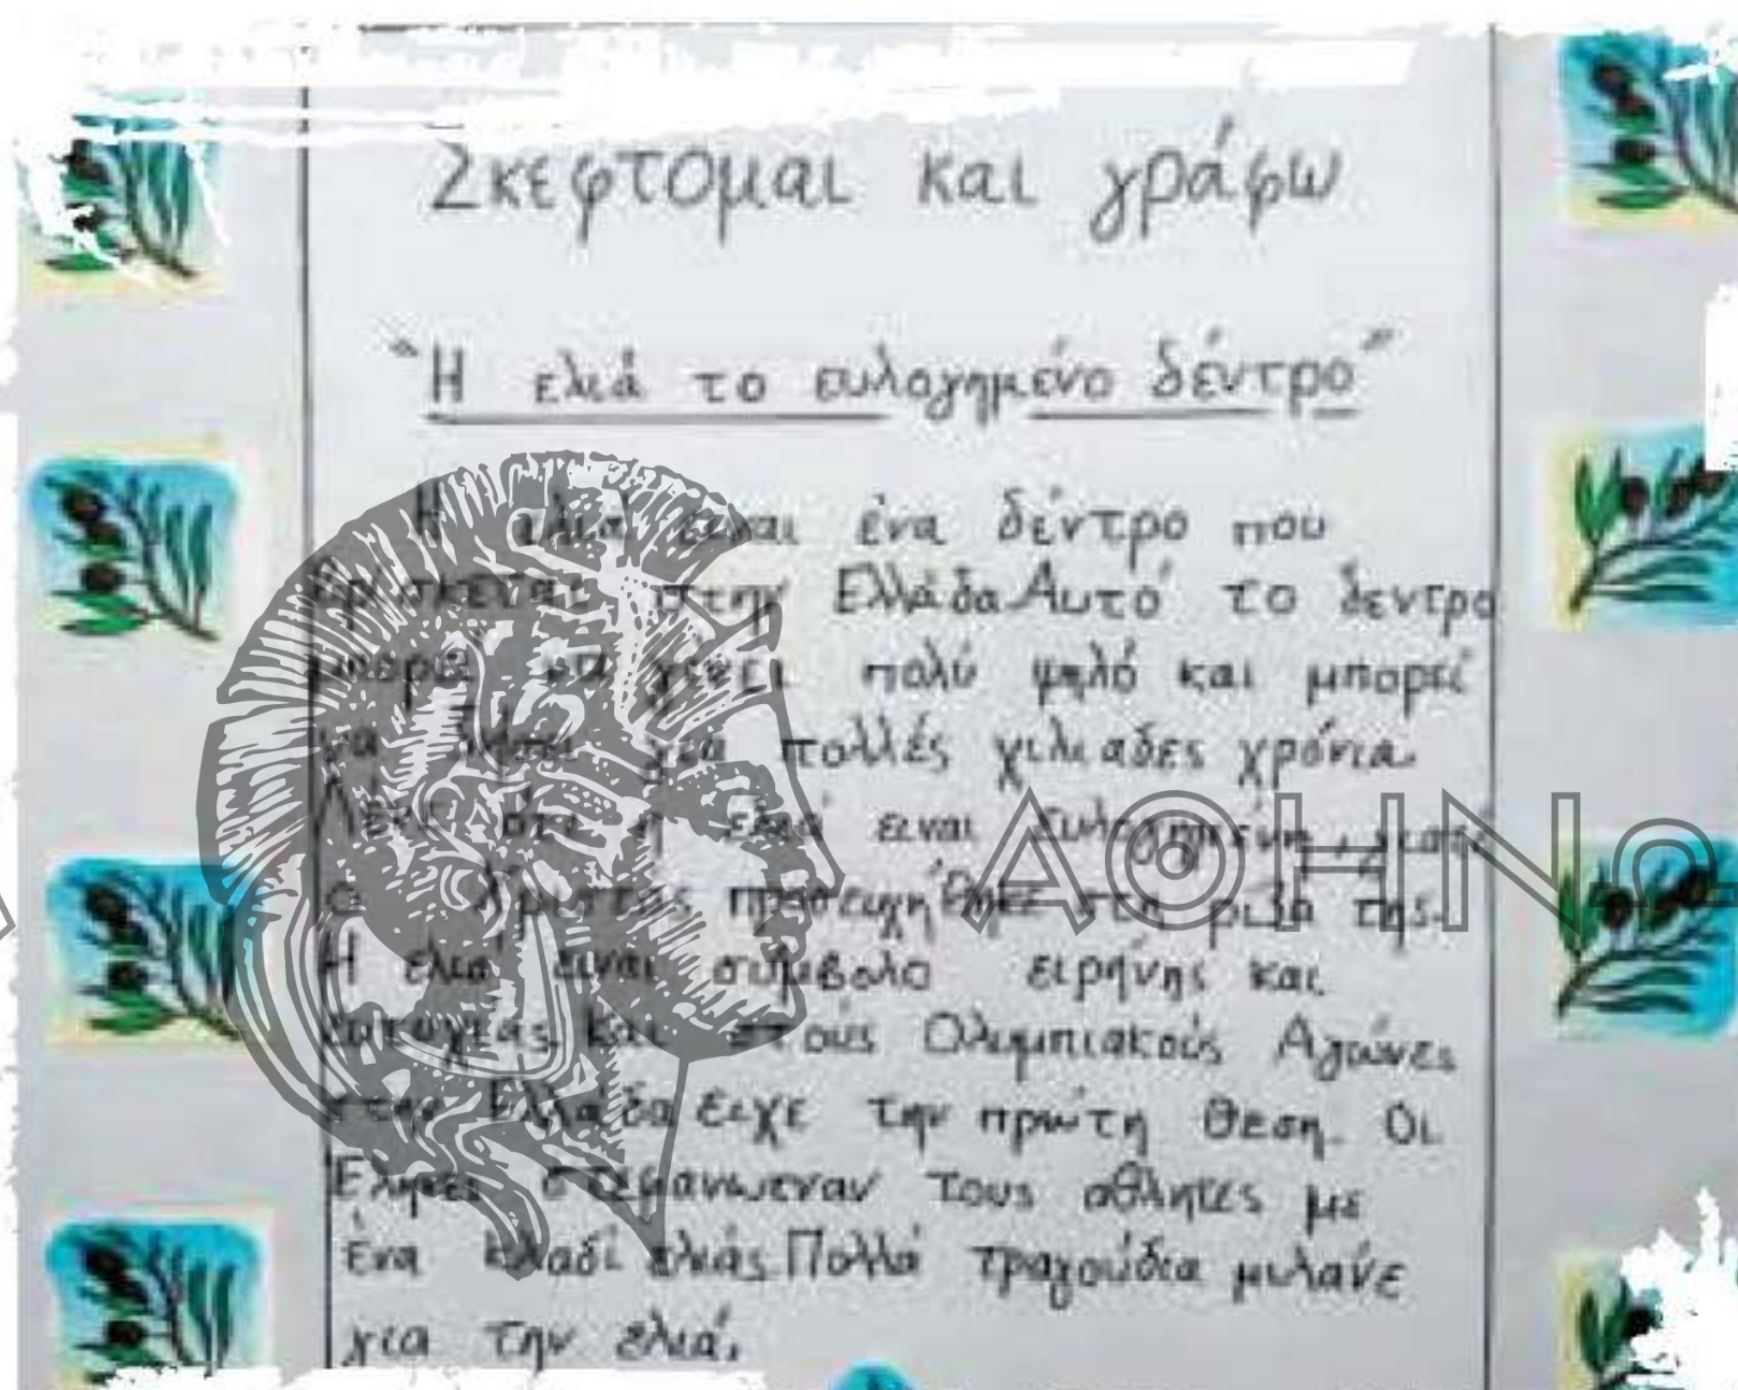 Σκεφτομαι και γράφω
"Η ελιά το ευλογημένο δέντρο"
Η ελιά ειναι ένα δέντρο που
βρισκεται στην Ελλάδα. Αυτό το δεντρο
μπορει να γινει πολύ ψηλό και μπορεί
να ζησει για πολλές χιλιαδες χρόνια.
Λενε οτι η ελιά ειναι ευλογημένη, γιατι
ο προσευχήθηκε στη ριζα της.
Η ελιά ειναι σύμβολο ειρήνης και
και στους Ολυμπιακούς Αγώνες
στην Ελλάδα ειχε την πρώτη θεση. Οι
Ελληνες στεφανωεναν τους αθλητες με
ένα κλαδί ελιάς. Πολλά τραγούδια μιλάνε
για την ελιά.
ΑΘΗΝΩ